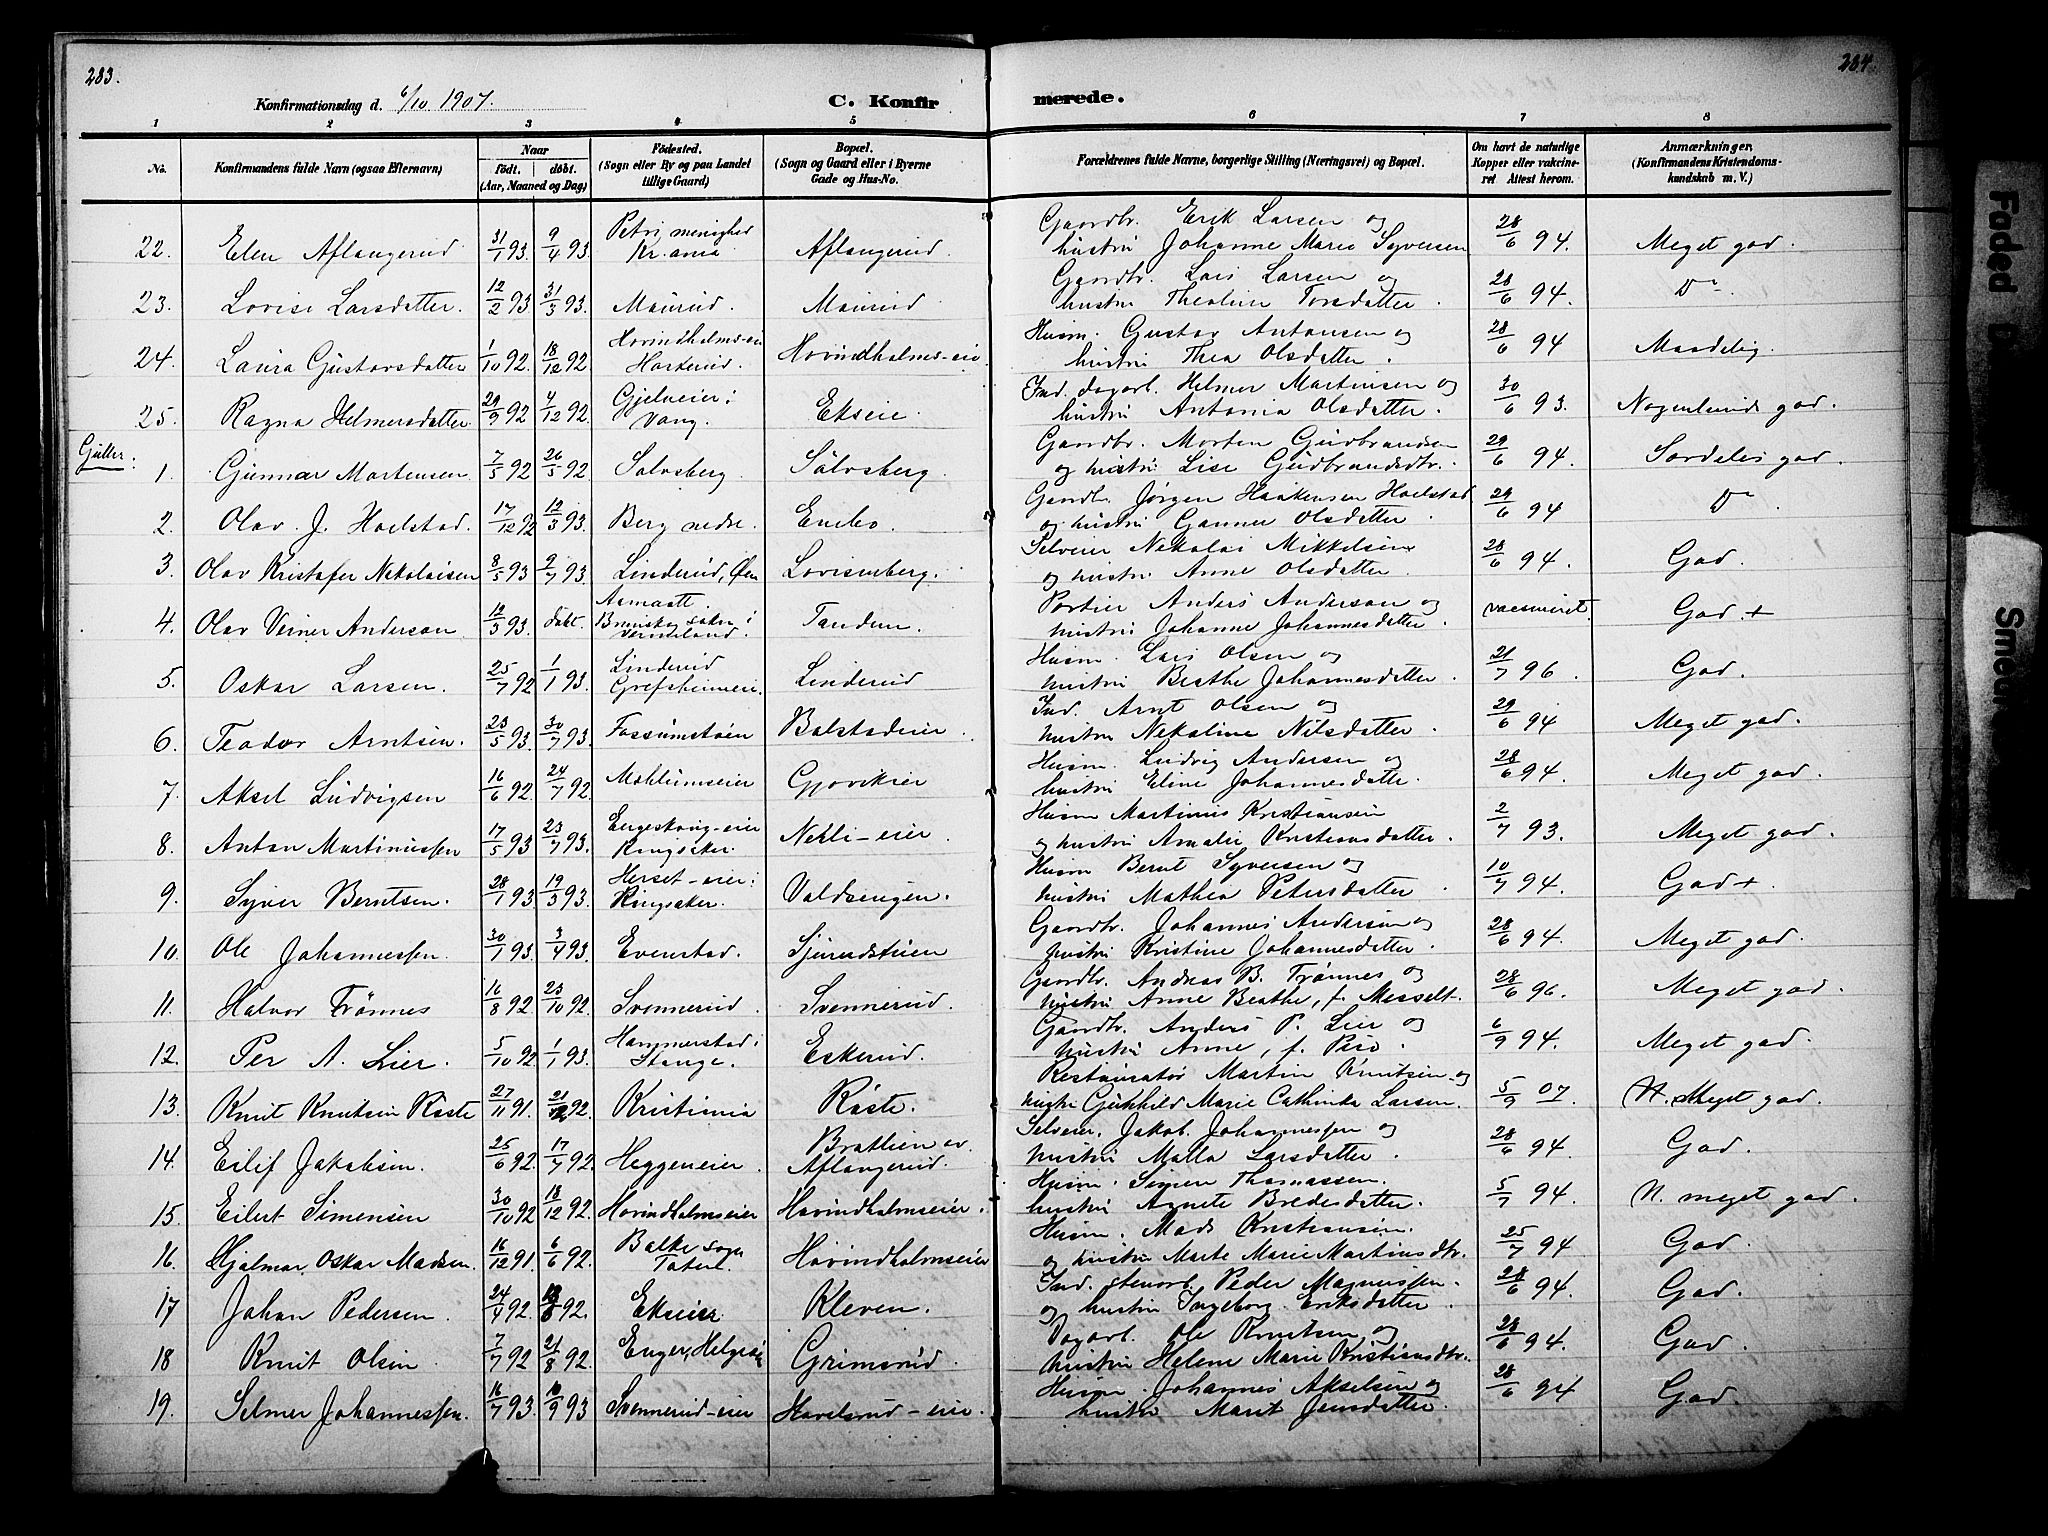 283.
284.
Konfirmationsdag d. 6/10 1907.
C. Konfirmerede.
1 2 3 4 5 6 7 8
No. Konfirmandens fulde Navn (ogsaa Efternavn) Naar født. døbt. (Aar, Maaned og Dag) Fødested. (Sogn eller By og paa Landet tillige Gaard) Bopæl. (Sogn og Gaard eller i Byerne Gade og Hus-No.) Forældrenes fulde Navne, borgerlige Stilling (Næringsvei) og Bopæl. Om havt de naturlige Kopper eller vakcineret Attest herom. Anmærkninger. (Konfirmandens Kristendomskundskab m. V.)
22. Elen Aflangerud 31/1 93. 9/4 93. Petri menighed Kr.ania Aflangerud. Gaardbr. Erik Larsen og hustru Johanne Marie Syversen 28/6 94. Meget god.
23. Lovise Larsdatter. 12/2 93 31/3 93. Maurud. Maurud Gaardbr. Lars Larsen og hustru Thealine Torsdatter. 28/6 94. Do.
24. Laura Gustavsdatter 1/10 92. 18/12 92. Hovindholms-eie Horkerud. Hovindholms-eie. Husm. Gustav Antonsen og hustru Thea Olsdatter. 28/6 94 Maadelig.
25. Ragna Helmersdatter. 29/9 92 4/12 92. Gjelveier i Vang. Ekseie. Ind. dagarb. Helmer Martinsen og hustru Antonia Olsdatter. 30/6 93. Nogenlunde god.
Gutter:
1. Gunnar Mortensen. 7/5 92 26/5 92. Solvsberg. Sølvsberg. Gaardbr. Morten Gudbrandsen og hustru Lise Gudbrandsdtr. 29/6 94. Særdeles god.
2. Olav. J. Hoelstad. 17/12 92 12/3 93. Berg nedre. Enebo. Gaardbr. Jørgen Haakensen Hoelstad og hustru Gunner Olsdatter. 29/6 94 Do.
3. Olav Kristofer Nikolaisen 8/5 93 2/7 93. Linderud, Lovisenberg. Selveier Nekolai Mikkelsen og hustru Anne Olsdatter. 28/6 94. God.
4. Olav Verner Anderson. 12/3 93. døbt. Aamaatt. Brunskog sokn i Vermeland. Tandem. Portier Anders Anderson og hustru Johanne Johannesdatter. vaccineret God. +
5. Oskar Larsen. 25/7 92 1/1 93. Linderud Grefsheimeie. Linderud Husm. Lars Olsen og hustru Beathe Johannesdatter. 21/7 96. God.
6. Teodor Arntsen. 23/5 93 30/7 93. Fossumstøen Bolstadeier. Ind. Arnt Olsen og hustru Nekoline Nilsdatter. 29/6 94 Meget god.
7. Aksel Ludvigsen 16/6 92. 24/7 92. Mehlumseier Gjøvikeier Husm. Ludvig Andersen og hustru Eline Johannesdatter. 28/6 94. Meget god.
8. Anton Martinussen 17/5 93 23/7 93. Engeskaug-eier Ringsaker. Nekli-eier. Husm Martinus Kristiansen og hustru Amalie Kristiansdatter. 2/7 93. Meget god.
9. Syver Berntsen. 28/1 93. 19/3 93. Herset-eier i Ringsaker. Valdsengen. Husm Bernt Syversen og hustru Mathea Petersdatter. 10/7 94. God +.
10. Ole Johannessen. 30/1 93. 3/4 93. Evenstad. Sjurudstuen Gaardbr. Johannes Andersen og hustru Kristine Johannesdatter. 28/6 94. Meget god.
11. Halvor Trønnes 16/8 92. 23/10 92. Svennerud. Svennerud. Gaardbr. Andreas B. Trønnes og hustru Anne Beathe, f. Messelt. 28/6 96. Meget god.
12. Per A. Lier. 5/10 92. 1/1 93. Hammerstad i Stange. Eskerud. Gaardbr. Anders P. Lier og hustru Anne, f. 6/9 94. Meget god.
13. Knut Knutsen Røste 27/11 91. 21/2 92. Kristiania Røste. Restauratør Martin Knutsen og hustru Gunhild Marie Cathinka Larsen. 5/9 07. N. Meget god.
14. Eilif Jakobsen. 25/6 92. 17/7 92. Heggeneier. Brattlien ev. Aflangerud. Selveier. Jakob. Johannessen og hustru Malla Larsdatter. 28/6 94. God.
15. Eilert Simensen 30/10 92 18/12 92. Hovindholmseier Hovindholmseier. Husm. Simen Thomassen. hustru Agnete Bredesdatter. 5/7 94. N. meget god.
16. Hjalmar Oskar Madsen. 16/12 91. 6/6 92. Balke sogn Toten. Hovindholmseier Husm. Mads Kristiansen. og hustru Marte Marie Martinsdtr. 25/7 94 God.
17. Johan Pedersen. 24/4 92. 92. Ekseier Kleven. Ind. stenarb. Peder Magnussen. og hustru Ingeborg Eriksdatter. 28/6 94. God.
18 Knut Olsen 7/7 92 21/8 92. Enger, Helgøen Grimsrud. Dagarb. Ole Knutsen og hustru Helene Marie Kristiansdtr. 28/6 94. God
19. Selmer Johannessen. 16/7 93. 10/9 93 Svennerud-eier Havelsrud-eie. Husm. Johannes Akselsen og hustru Marit Jensdatter. 28/6 94 God.
Faded